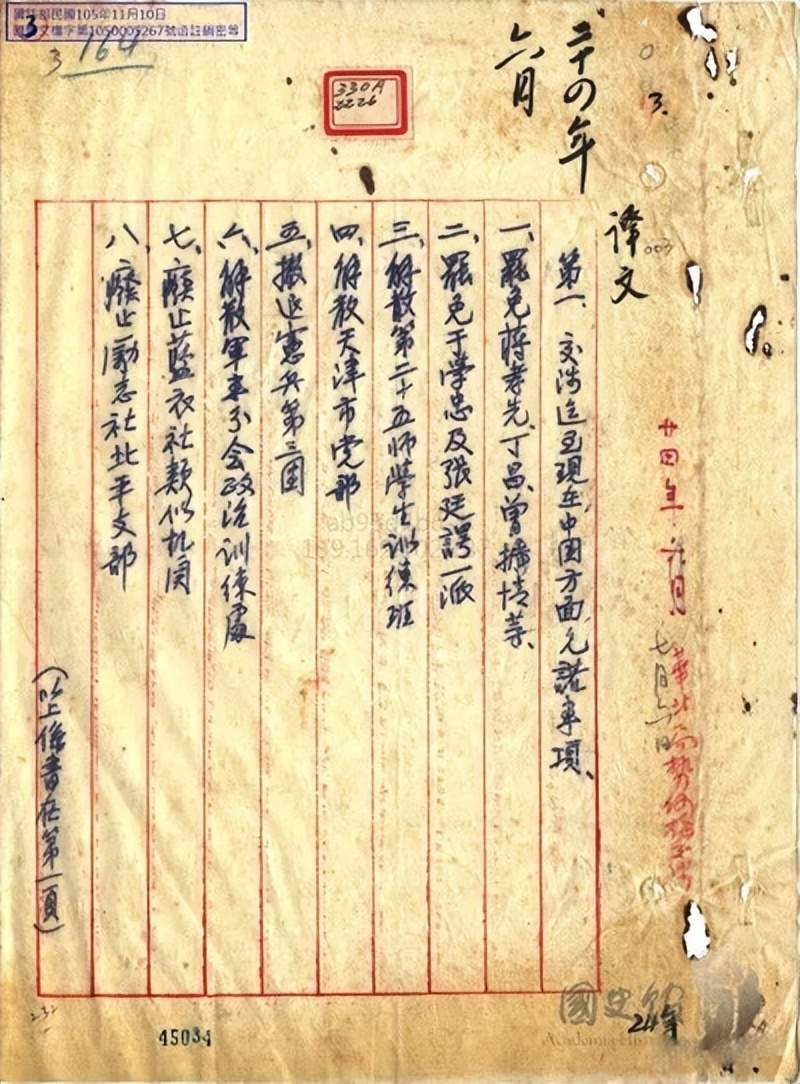 國防部民國105年11月10日
國防文檔字第1050005267號函註銷密等
3
3 164
330A
2226
3.
二十四年
六月
譯文
003
第一、交涉迄至現在中国方面允諾事項、
一、罷免蔣孝先、丁昌、曾擴情等、
二、罷免于学忠及張廷諤一派
三、解散第二十五师學生训练班
四、解散天津市党部
五、撤退憲兵第三團
六、解散軍事分会政治训练處
七、廢止藍衣社類似机関
八、廢止勵志社北平支部
(以上係書在第一頁)
廿四年 六月
七月六日
華北局勢
國史館
Academia
24年
45034